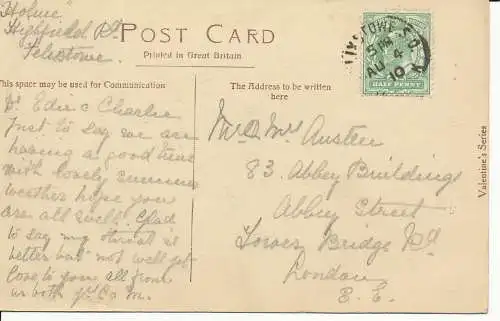 "Holme"
Highfield Rd
Felixstowe.
POST CARD
Printed in Great Britain
This space may be used for Communication
The Address to be written
here
Dr Edie & Charlie
Just to say we are
having a good time
with lovely summer
weather hope you
are all well. Glad
to say my throat is
better but not well yet
Love to you all from
us both
Mr & Mrs Austen
83. Abbey Buildings
Abbey Street
Tower Bridge Rd
London
S. E.
FELIXSTOWE S.O.
AU 4
10
HALF PENNY
Valentine's Series